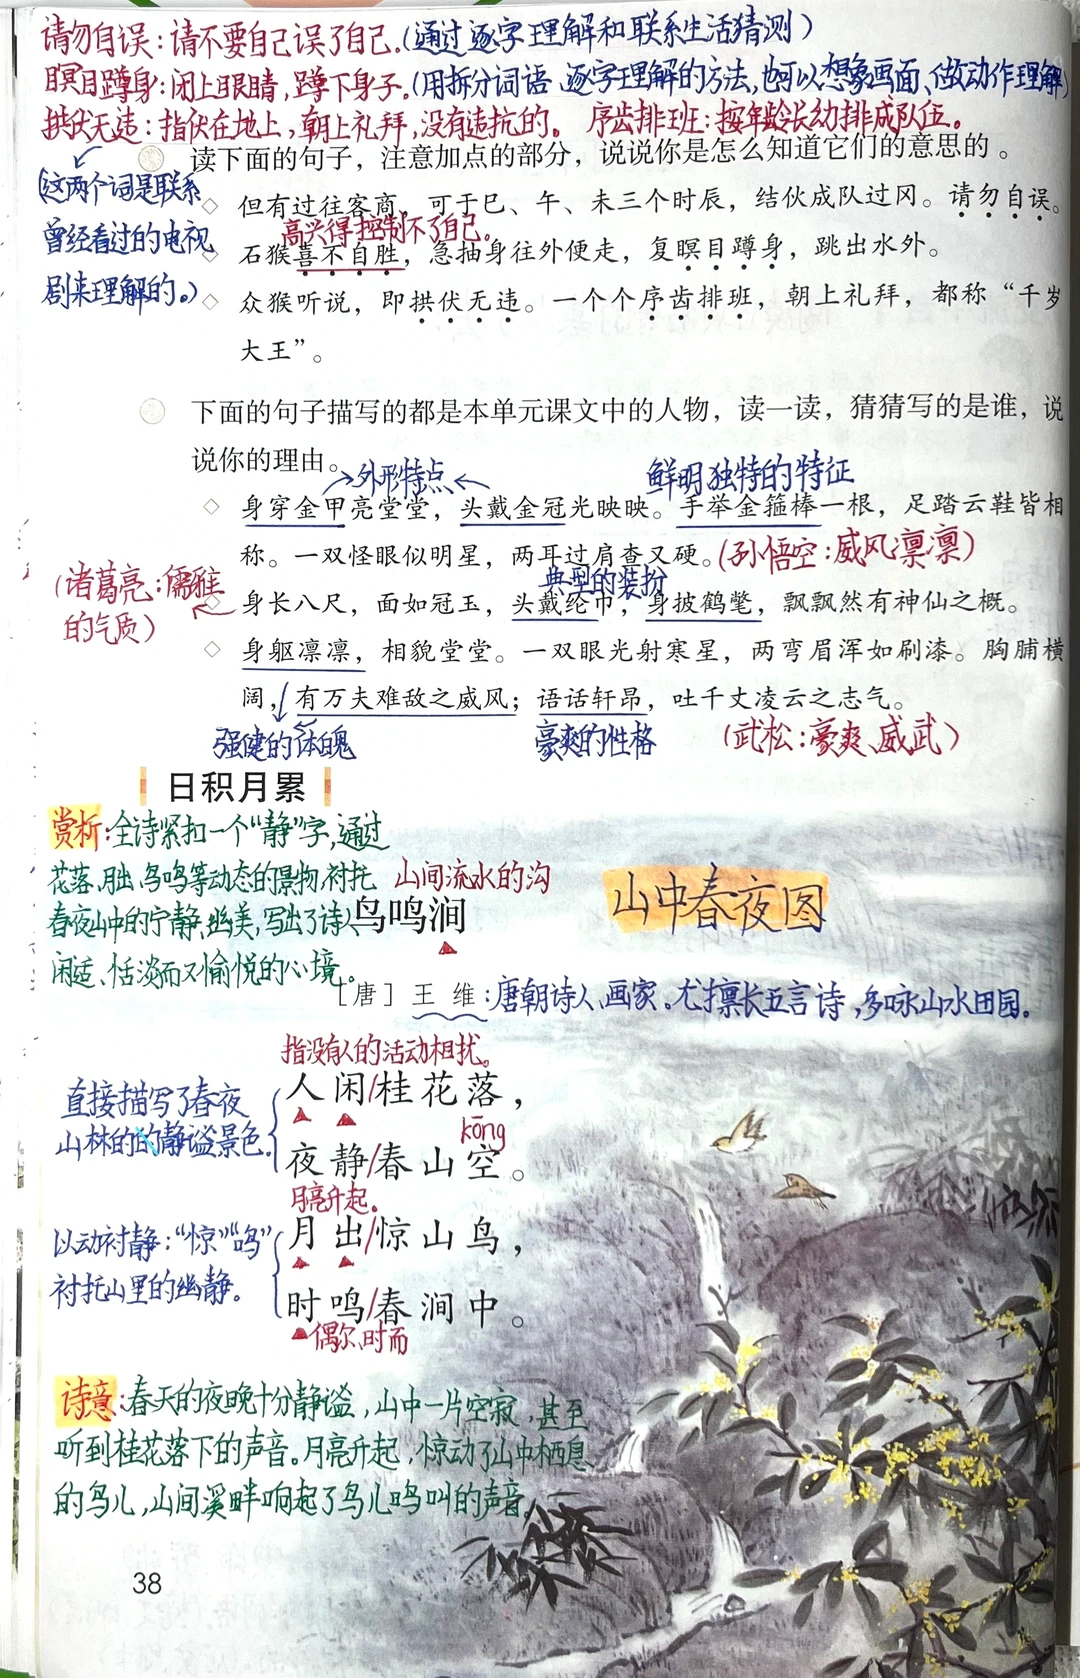 请勿自误：请不要自己误了自己。(通过逐字理解和联系生活猜测)
瞑目蹲身：闭上眼睛，蹲下身子。(用拆分词语、逐字理解的方法，也可以想象画面、做动作理解)
拱伏无违：指伏在地上，朝上礼拜，没有违抗的。 序齿排班：按年龄长幼排成队伍。
读下面的句子，注意加点的部分，说说你是怎么知道它们的意思的。
(这两个词是联系
曾经看过的电视
剧来理解的。)
◇ 但有过往客商，可于巳、午、未三个时辰，结伙成队过冈。请勿自误。
高兴得控制不了自己。
◇ 石猴喜不自胜，急抽身往外便走，复瞑目蹲身，跳出水外。
◇ 众猴听说，即拱伏无违。一个个序齿排班，朝上礼拜，都称“千岁
大王”。
下面的句子描写的都是本单元课文中的人物，读一读，猜猜写的是谁，说
说你的理由。
外形特点
鲜明独特的特征
◇ 身穿金甲亮堂堂，头戴金冠光映映。手举金箍棒一根，足踏云鞋皆相
称。一双怪眼似明星，两耳过肩查又硬。(孙悟空：威风凛凛)
典型的装扮
(诸葛亮：儒雅
的气质)
◇ 身长八尺，面如冠玉，头戴纶巾，身披鹤氅，飘飘然有神仙之概。
◇ 身躯凛凛，相貌堂堂。一双眼光射寒星，两弯眉浑如刷漆。胸脯横
阔，有万夫难敌之威风；语话轩昂，吐千丈凌云之志气。
强健的体魄
豪爽的性格
(武松：豪爽、威武)
日积月累
赏析：全诗紧扣一个“静”字，通过
花落、月出、鸟鸣等动态的景物，衬托
春夜山中的宁静、幽美，写出了诗人
闲适、恬淡而又愉悦的心境。
山间流水的沟
鸟鸣涧
山中春夜图
［唐］王维：唐朝诗人、画家。尤擅长五言诗，多咏山水田园。
指没有人的活动相扰。
直接描写了春夜
山林的的静谧景色。
人闲/桂花落，
kōng
夜静/春山空。
月亮升起。
以动衬静：“惊”“鸣”
衬托山里的幽静。
月出/惊山鸟，
时鸣/春涧中。
偶尔、时而
诗意：春天的夜晚十分静谧，山中一片空寂，甚至
听到桂花落下的声音。月亮升起，惊动了山中栖息
的鸟儿，山间溪畔响起了鸟儿鸣叫的声音。
38